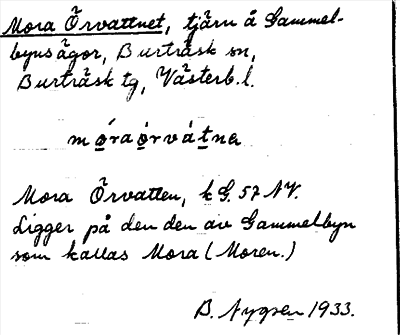 Mora Örvattnet, tjärn å Gammel-
bynsägor, Burträsk sn,
Burträsk tg, Västerb. l.
móraórvátna
Mora Örvatten, k G. 57 NV.
Ligger på den den av Gammelbyn
som kallas Mora (Moren.)
B. Nygren 1933.